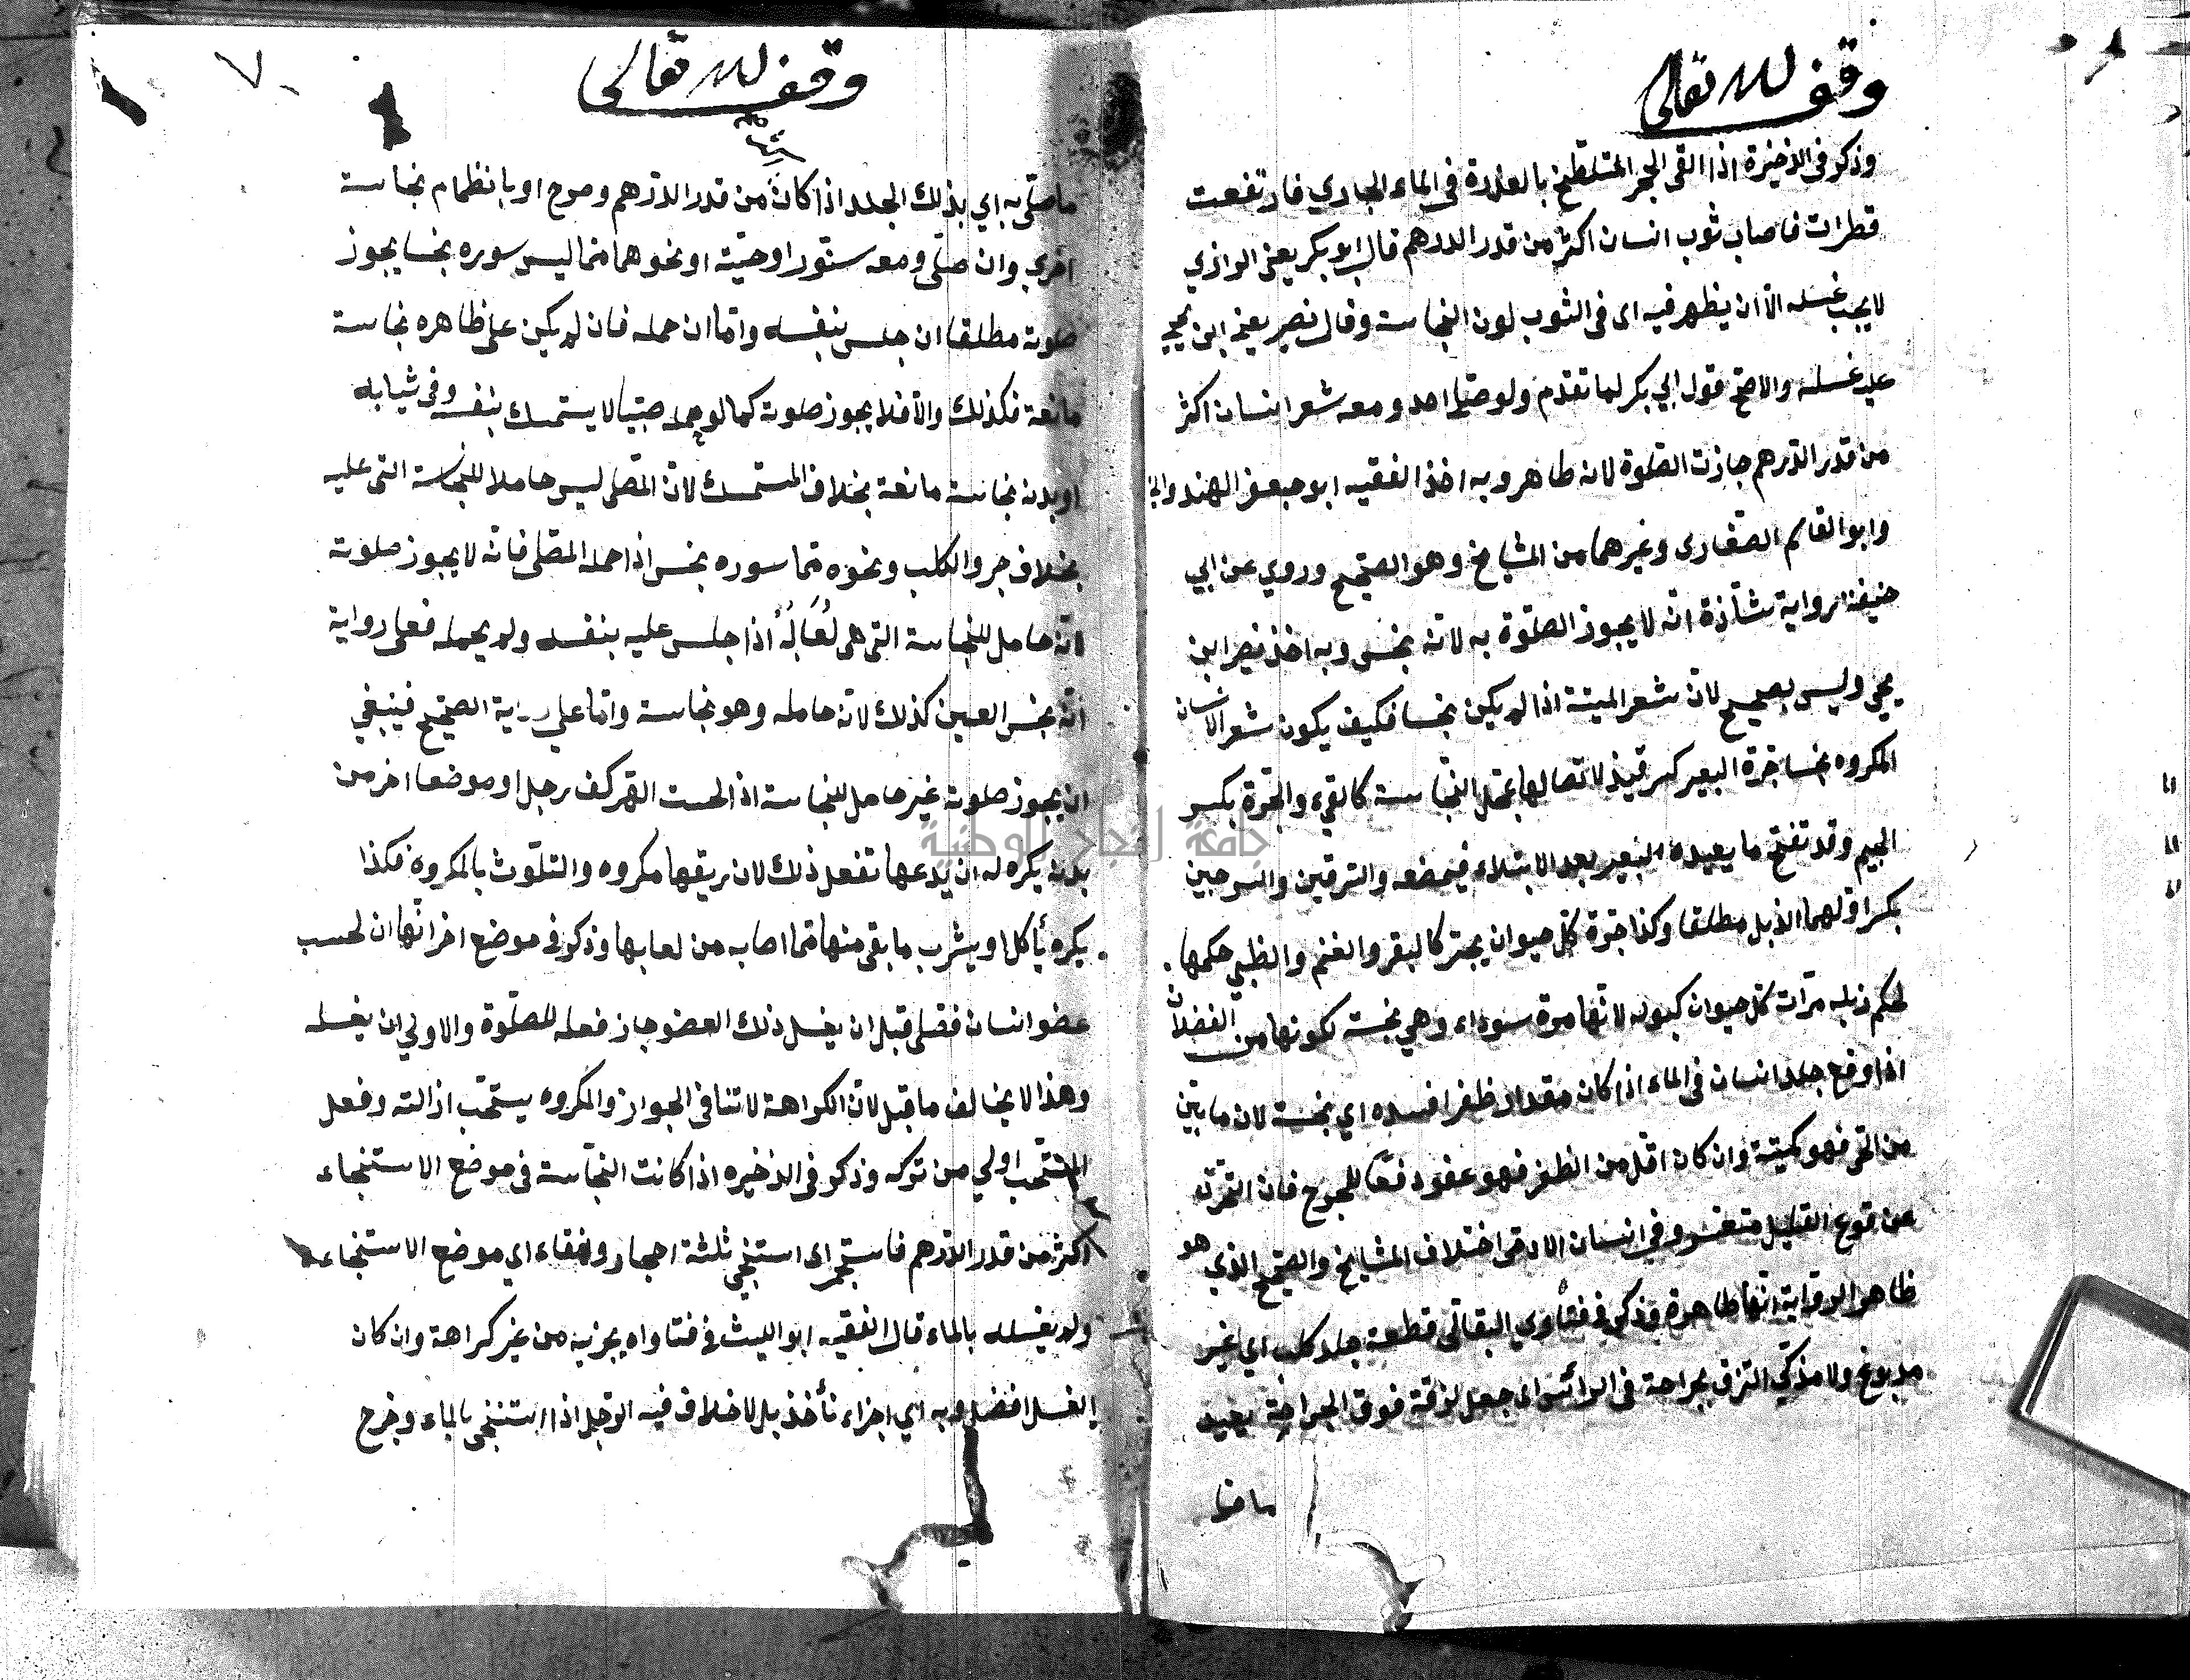 وقف لله تعالى
وذكر فى الذخيرة اذا القى الحجر المتلطخ بالعذرة فى الماء الجاري فارتفعت
قطرات فاصاب ثوب انسان اكثر من قدر الدرهم قال ابو بكر يعنى الرازي
لا يجب غسله الا ان يظهر فيه اى فى الثوب لون النجاسة وقال نصير يعنى ابن يحيى
عليه غسله والاصح قول ابي بكر لما تقدم ولو صلى احد ومعه شعر انسان اكثر
من قدر الدرهم جازت الصلوة لانه طاهر وبه اخذ الفقيه ابو جعفر الهندواني
وابو القاسم الصفارى وغيرهما من المشايخ وهو الصحيح وروي عن ابي
حنيفة رواية شاذة انه لا يجوز الصلوة به لانه نجس وبه اخذ نصر ابن
يحيى وليس بصحيح لان شعر الميتة اذا لم يكن نجسا فكيف يكون شعر الانسان
المكروه نجسا جرة البعير كسرقينه لاتصالها بمحل النجاسة كالقيء والجرة بكسر
الجيم وقد تفتح ما يعيده البعير بعد الابتلاء فيمضغه والسرقين والسرجين
بكسر اولهما الذبل مطلقا وكذا جرة كل حيوان يجتر كالبقر والغنم والظبي حكمها
حكم زبله مرات كل حيوان كبوله لانها مرة سوداء وهي نجسة لكونها من الفضلات
اذا وقع جلد انسان فى الماء اذا كان مقدار ظفر افسده اي نجسه لان ما بين
من الحى فهو كميتة وان كان اقل من الظفر فهو عفو دفعا للحرج فان التحرز
عن قوع القليل متعسر وفي اسنان الادمى اختلاف المشايخ والصحيح الذي هو
ظاهر الرواية انها طاهرة وذكر فى فتاوي البقالى قطعة جلد كلب اي غير
مدبوغ ولا مذكى التزق بجراحة فى الرأس اى جعل لزقة فوق الجراحة يعيد
ما صلى
وقف لله تعالى
ما صلى به اي بذلك الجلد اذا كان من قدر الدرهم وحوح او بانظمام نجاسة
اخرى وان صلى ومعه سنور او حية او نحوهما مما ليس سوره نجسا يجوز
صلوته مطلقا ان جلس بنفسه واما ان حمله فان لم يكن على ظاهره نجاسة
مانعة فكذلك والا فلا يجوز صلوته كما لو حمل صبيا لا يستمسك بنفسه وفى ثيابه
او بدنه نجاسة مانعة بخلاف المستمسك لان المصلى ليس حاملا للنجاسة التى عليه
بخلاف جرو الكلب ونحوه مما سوره نجس اذا حمله المصلى فانه لا يجوز صلوته
لانه حامل للنجاسة التى هى لعابه اذا جلس عليه بنفسه ولم يحمله فعلى رواية
انه نجس العين كذلك لانه حامله وهو نجاسة واما على رواية الصحيح فينبغي
ان يجوز صلوته غير حامل للنجاسة اذا لحست الهر كف رجل او موضعا اخر من
بدنه يكره له ان يدعها تفعل ذلك لان ريقها مكروه والتلوث بالمكروه فكذا
يكره يأكل او يشرب ما بقى منها مما اصابه من لعابها وذكر فى موضع اخر انها ان لحست
عضو انسان فصلى قبل ان يغسل ذلك العضو جاز فعله للصلوة والاولي ان يغسله
وهذا لا يخالف ما قبل لان الكراهة لا تنافى الجواز والمكروه يستحب ازالته وفعل
المستحب اولي من تركه وذكر فى الذخيره اذا كانت النجاسة فى موضع الاستنجاء
اكثر من قدر الدرهم فاستجمر اى استنجى ثلثة احجار وانقاء اي موضع الاستنجاء
ولم يغسله بالماء قال الفقيه ابو الليث فى فتاواه يجزيه من غير كراهة وان كان
الغسل افضل وبه اي اجزاء نأخذ بل لا خلاف فيه الرجل اذا استنجى بالماء وخرج
جامعة النجاح الوطنية